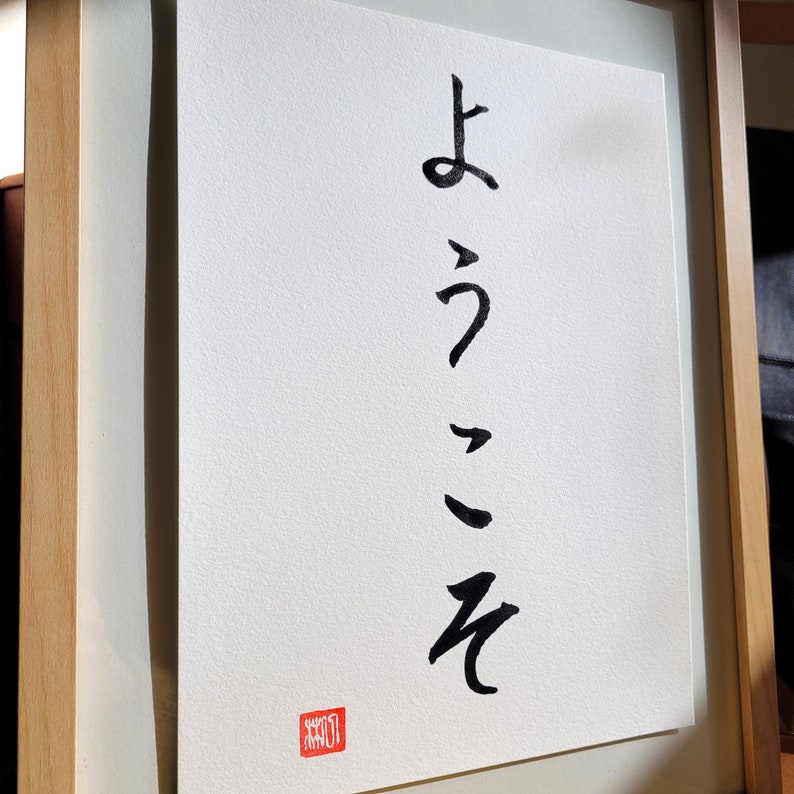 ようこそ